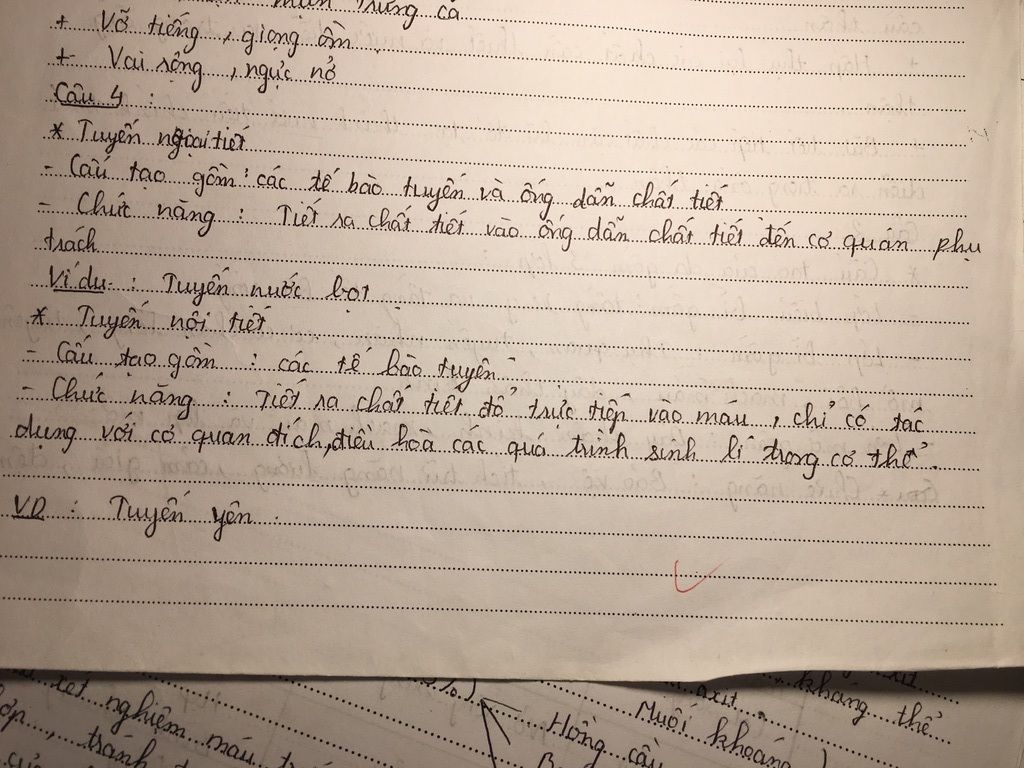 mụn trứng cá
+ Vỡ tiếng, giọng ồm
+ Vai rộng, ngực nở
Câu 4 :
* Tuyến ngoại tiết
- Cấu tạo gồm : các tế bào tuyến và ống dẫn chất tiết
- Chức năng : Tiết ra chất tiết vào ống dẫn chất tiết đến cơ quan phụ
trách
Ví dụ : Tuyến nước bọt
* Tuyến nội tiết
- Cấu tạo gồm : các tế bào tuyến
- Chức năng : Tiết ra chất tiết đổ trực tiếp vào máu, chỉ có tác
dụng với cơ quan đích, điều hoà các quá trình sinh lí trong cơ thể.
VD : Tuyến yên
kháng thể
axit
Muối khoáng
Hồng cầu
xét nghiệm máu
tránh